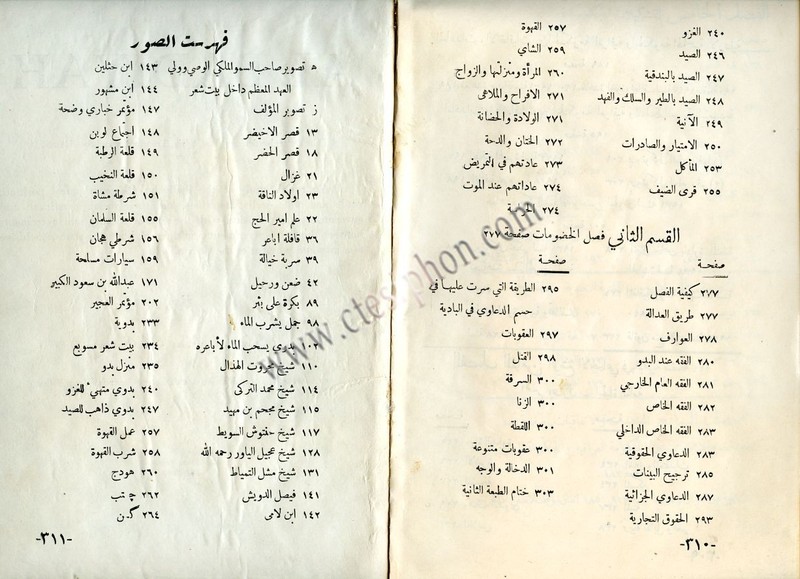 ٢٤٠ الغزو
٢٤٦ الصيد
٢٤٧ الصيد بالبندقية
٢٤٨ الصيد بالطير والسلك والفهد
٢٤٩ الآنية
٢٥٠ الامتيار والصادرات
٢٥٣ المأكل
٢٥٥ قرى الضيف
٢٥٧ القهوة
٢٥٩ الشاي
٢٦٠ المرأة ومنزلتها والزواج
٢٧١ الافراح والملاهي
٢٧١ الولادة والحضانة
٢٧٢ الختان والدحة
٢٧٣ عادتهم في التمريض
٢٧٤ عاداتهم عند الموت
٢٧٤
القسم الثاني فصل الخصومات صفحة ٢٧٧
صفحة
٢٧٧ كيفية الفصل
٢٧٧ طريق العدالة
٢٧٨ العوارف
٢٨٠ الفقه عند البدو
٢٨١ الفقه العام الخارجي
٢٨٢ الفقه الخاص
٢٨٣ الفقه الخاص الداخلي
٢٨٣ الدعاوي الحقوقية
٢٨٥ ترجيح البينات
٢٨٧ الدعاوي الجزائية
٢٩٣ الحقوق التجارية
صفحة
٢٩٥ الطريقة التي سرت عليها في
حسم الدعاوي في البادية
٢٩٧ العقوبات
٢٩٨ القتل
٣٠٠ السرقة
٣٠٠ الزنا
٣٠٠ اللقطة
٣٠٠ عقوبات متنوعة
٣٠١ الدخالة والوجه
٣٠٣ ختام الطبعة الثانية
-٣١٠-
فهرست الصور
ه تصوير صاحب السمو الملكي الوصي وولي
العهد المعظم داخل بيت شعر
ز تصوير المؤلف
١٣ قصر الاخيضر
١٨ قصر الحضر
٢١ غزال
٢٣ اولاد الناقة
٢٢ علم امير الحج
٣٦ قافلة اباعر
٣٩ سربة خيالة
٤٢ ضعن ورحيل
٨٩ بكرة على بئر
٩٨ جمل يشرب الماء
١٠٣ بدوي يسحب الماء لأباعره
١١٠ شيخ محروت الهذال
١١٤ شيخ محمد التركي
١١٥ شيخ مجحم بن مهيد
١١٧ شيخ حنتوش السويط
١٢٨ شيخ عجيل الياور رحمه الله
١٣١ شيخ مشل التمياط
١٤١ فيصل الدويش
١٤٢ ابن لامى
١٤٣ ابن حثلين
١٤٤ ابن مشهور
١٤٧ مؤتمر خباري وضحة
١٤٨ اجتماع لوبن
١٤٩ قلعة الرطبة
١٥٠ قلعة النخيب
١٥١ شرطة مشاة
١٥٥ قلعة السلمان
١٥٦ شرطي هجان
١٥٩ سيارات مسلحة
١٧١ عبدالله بن سعود الكبير
٢٠٢ مؤتمر العجير
٢٣٣ بدوية
٢٣٤ بيت شعر مسوبع
٢٣٥ منزل بدو
٢٤٠ بدوي متهيئ للغزو
٢٤٧ بدوي ذاهب للصيد
٢٥٧ عمل القهوة
٢٥٨ شرب القهوة
٢٦٠ هودج
٢٦٢
٢٦٤
-٣١١-
www.ctesiphon.com